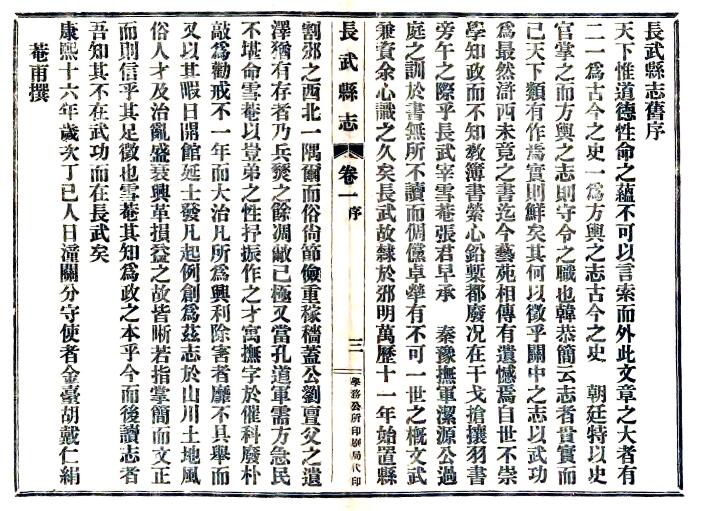 長武縣志舊序
天下惟道德性命之蘊不可以言索而外此文章之大者有
二一爲古今之史一爲方輿之志古今之史　朝廷特以史
官掌之而方輿之志則守令之職也韓恭簡云志者貴實而
已天下類有作爲實則鮮矣其何以徵乎關中之志以武功
爲最然滸西未竟之書迄今藝苑相傳有遺憾爲自世不崇
學知政而不知教簿書縈心鉛槧都廢况在干戈搶攘羽書
旁午之際乎長武宰雪菴張君早承　秦豫撫軍潔源公過
庭之訓於書無所不讀而倜儻卓犖有不可一世之概文武
兼資余心識之久矣長武故隸於邠明萬歷十一年始置縣
長武縣志
卷一
序
三
學務公所印刷局代印
割邠之西北一隅爾而俗尚節儉重稼穡蓋公劉亶父之遺
澤猶有存者乃兵燹之餘凋敝已極又當孔道軍需方急民
不堪命雪菴以豈弟之性抒振作之才寓撫字於催科廢朴
敲爲勸戒不一年而大治凡所爲興利除害者靡不具舉而
又以其暇日開館延士發凡起例創爲茲志於山川土地風
俗人才及治亂盛衰興革損益之故皆晰若指掌簡而文正
而則信乎其足徵也雪菴其知爲政之本乎今而後讀志者
吾知其不在武功而在長武矣
康熙十六年歲次丁巳人日潼關分守使者金臺胡戴仁絹
菴甫撰